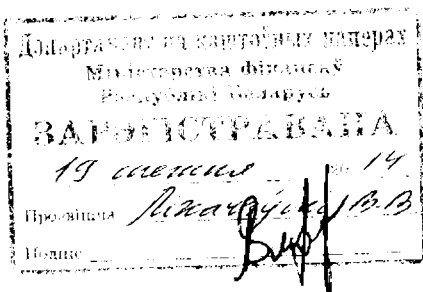 Дэпартамент па каштоўных паперах
Міністэрства фінансаў
Рэспублікі Беларусь
ЗАРЭГІСТРАВАНА
19 20 14
Прозвішча В.В
Подпіс